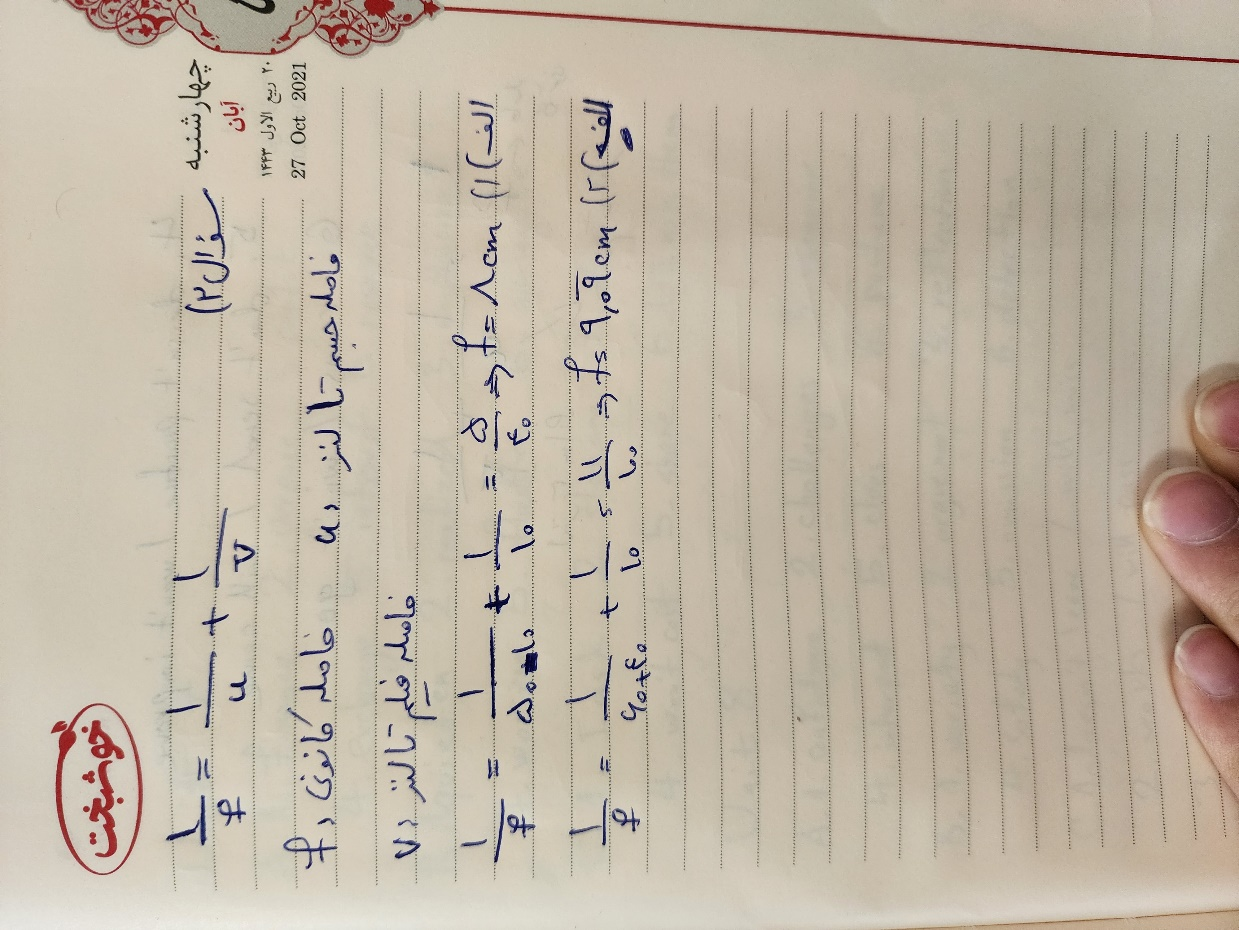 خوشبخت
چهارشنبه
آبان
۲۰ ربیع الاول ۱۴۴۳
27 Oct 2021
سؤال ۲) ۱/f = ۱/u + ۱/v
f: فاصله کانونی u: فاصله جسم تا لنز
v: فاصله فیلم تا لنز
الف) ۱) ۱/f = ۱/۵۰-۱۰ + ۱/۱۰ = ۵/۴۰ ⇒ f = ۸cm
الف) ۲) ۱/f = ۱/۶۰+۴۰ + ۱/۱۰ = ۱۱/۱۰۰ ⇒ f = ۹٫۰۹cm